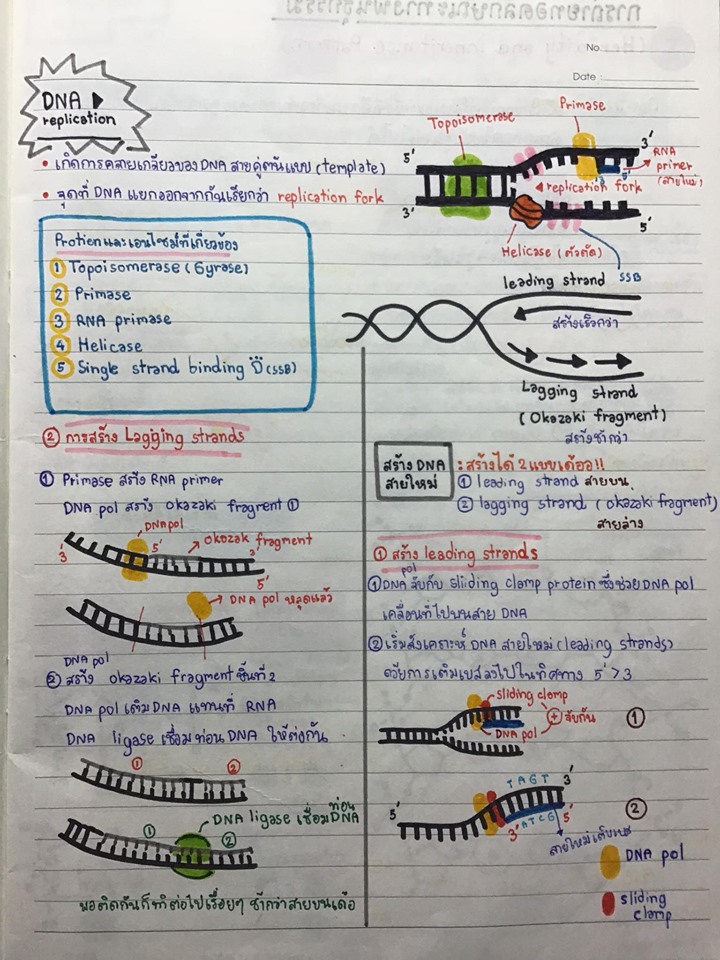 No.
Date :
DNA ▶
replication
• เกิดการคลายเกลียวของ DNA สายคู่ต้นแบบ (template)
• จุดที่ DNA แยกออกจากกันเรียกว่า replication fork
Topoisomerase
Primase
5'
3'
RNA
primer
(สายใหม่)
replication fork
3'
5'
Helicase (ตัวตัด)
SSB
Protienและเอนไซม์ที่เกี่ยวข้อง
① Topoisomerase (Gyrase)
② Primase
③ RNA primase
④ Helicase
⑤ Single strand binding (SSB)
leading strand
สร้างเร็วกว่า
Lagging strand
(Okazaki fragment)
สร้างช้ากว่า
② การสร้าง Lagging strands
① Primase สร้าง RNA primer
DNA pol สร้าง okazaki fragrent ①
DNA pol
3'
5'
okazak fragment
3'
5'
DNA pol หลุดแล้ว
DNA pol
② สร้าง okazaki fragment ชิ้นที่ 2
DNA pol เติม DNA แทนที่ RNA
DNA ligase เชื่อมท่อน DNA ให้ต่อกัน
①
②
DNA ligase เชื่อมท่อน DNA
①
②
พอติดกันก็ทำต่อไปเรื่อยๆ ช้ากว่าสายบนเด้อ
สร้าง DNA
สายใหม่
: สร้างได้ 2 แบบเด้ออ!!
① leading strand สายบน
② lagging strand (okazaki fragment)
สายล่าง
① สร้าง leading strands
① DNA pol จับกับ sliiding clamp protein ซึ่งช่วย DNA pol
เคลื่อนที่ไปบนสาย DNA
② เริ่มสังเคราะห์ DNA สายใหม่ (leading strands)
ด้วยการเติมเบสลงไปในทิศทาง 5' > 3
sliding clamp
+ จับกัน
DNA pol
①
TAGT
3'
5'
ATCG
5'
3'
②
สายใหม่เติมเบส
DNA pol
sliding
clamp